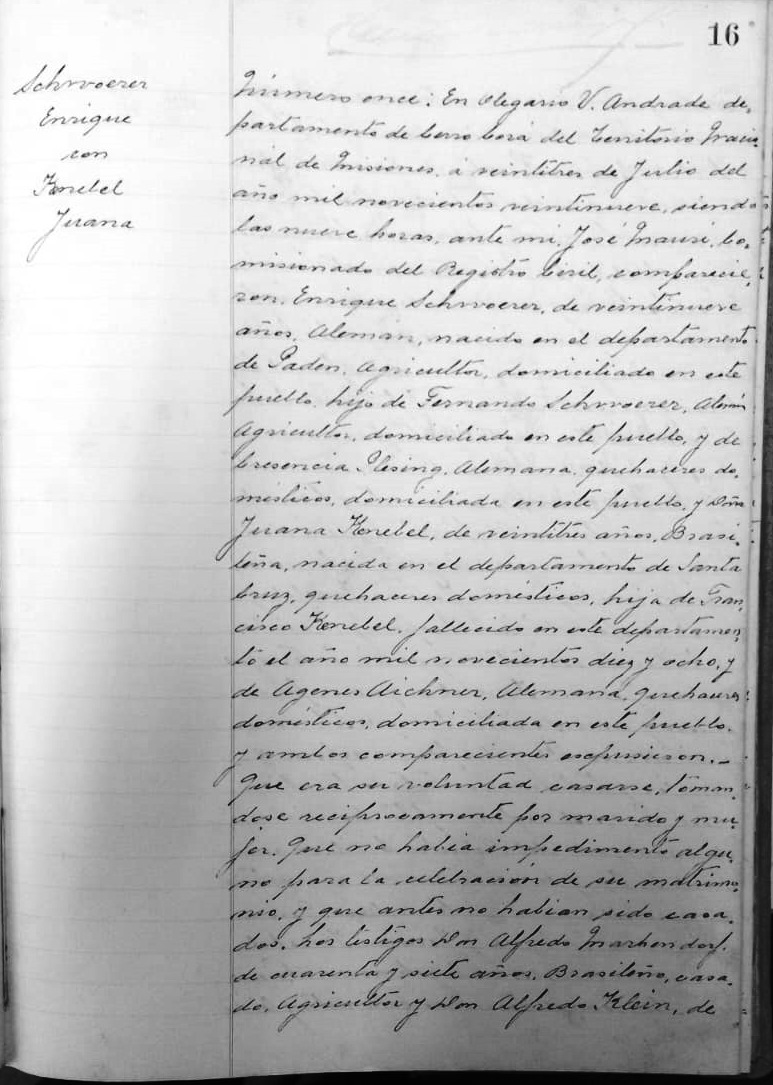 16
Schwoerer
Enrique
con
Knebel
Juana
Número once: En Olegario V. Andrade de,
partamento de Cerro Corá del Territorio Nacio,
nal de Misiones, á veintitres de Julio del
año mil novecientos veintinueve, siendo
las nueve horas, ante mi, José Mauri, Co,
misionado del Registro Civil, comparecie,
ron, Enrique Schwoerer, de veintinueve
años, Alemán, nacido en el departamento
de Baden, Agricultor, domiciliado en este
pueblo, hijo de Fernando Schwoerer, Alemán
Agricultor, domiciliado en este pueblo, y de
Cresencia Plesing, Alemana, quehaceres do,
mésticos, domiciliada en este pueblo, y Doña
Juana Knebel, de veintitres años, Brasi,
leña, nacida en el departamento de Santa
Cruz, quehaceres domésticos, hija de Fran,
cisco Knebel, fallecido en este departamen,
to el año mil novecientos diez y ocho, y
de Agenes Aichner, Alemana, quehaceres
domésticos, domiciliada en este pueblo.
y ambos comparecientes expusieron._
Que era su voluntad casarse, toman,
dose reciprocamente por marido y mu,
jer. Que no habia impedimento algu,
no para la celebración de su matrimo,
nio, y que antes no habian sido casa,
dos. Los testigos Don Alfredo Markendorf,
de cuarenta y siete años, Brasileño, casa,
do, Agricultor y Don Alfredo Klein, de